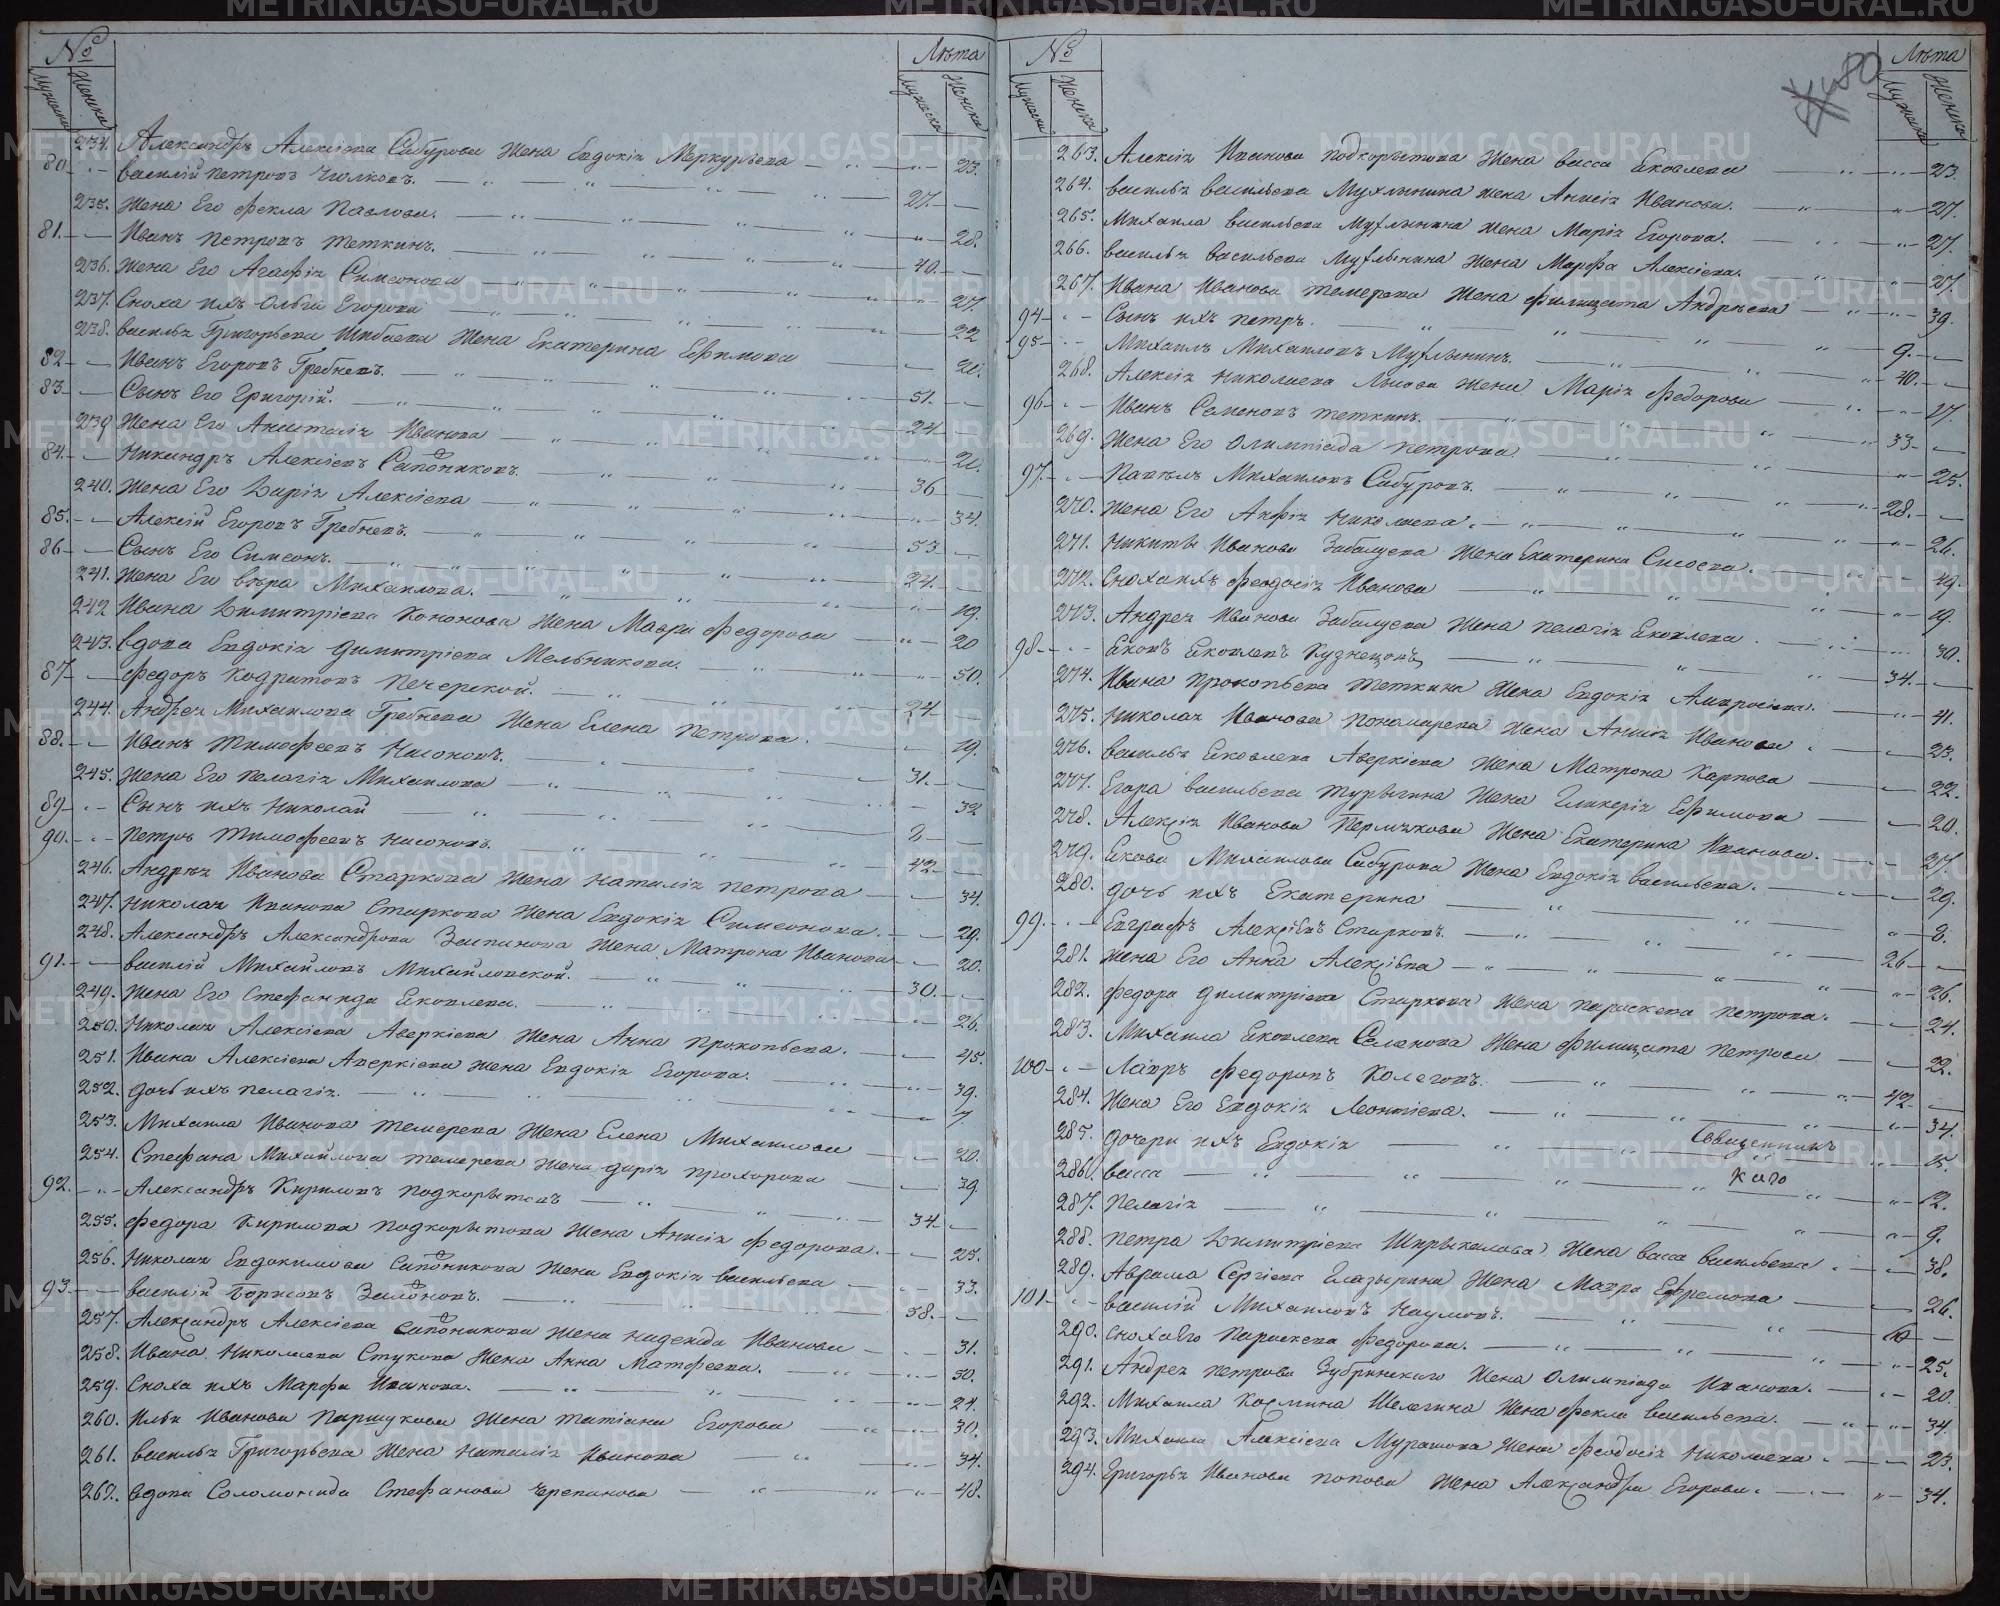 № Лѣта
Мужеска Женска Мужеска Женска
234. Александръ Алексіева Сабурова Жена Евдокія Меркурьева 23.
80 Василій Петровъ Чолковъ. 27.
235. Жена Его Фекла Павлова. 28.
81. Иванъ Петровъ Теткинъ. 40.
236. Жена Его Агафія Симеонова 27.
237. Сноха ихъ Ольга Егорова 22
238. Василья Григорьева Шибаева Жена Екатерина Ефимова 21.
82 Иванъ Егоровъ Гребневъ. 51.
83 Сынъ Его Григорій. 24
239 Жена Его Анастасія Иванова 21.
84. Никандръ Алексіевъ Сапожниковъ. 36
240. Жена Его Дарія Алексіева 34.
85. Алексій Егоровъ Гребневъ. 53
86 Сынъ Его Симеонъ. 24.
241. Жена Его Вѣра Михаилова. 19.
242 Ивана Димитріева Кононова Жена Мавра Федорова 20
243. Вдова Евдокія Димитріева Мельникова. 50.
87 Федоръ Кодратовъ Печерской. 24
244. Андрея Михаилова Гребнева Жена Елена Петрова. 19.
88. Иванъ Тимофеевъ Насоновъ. 31.
245. Жена Его Пелагія Михаилова 32
89 Сынъ ихъ Николай 8
90. Петръ Тимофеевъ Насоновъ. 42
246. Андрея Иванова Старкова Жена Наталія Петрова 34.
247. Николая Иванова Старкова Жена Евдокія Симеонова. 29.
248. Александръ Александрова Жена Матрона Иванова 20.
91. Василій Михайловъ Михайловской. 30.
249. Жена Его Стефанида Яковлева. 26.
250. Николая Алексіева Аверкіева Жена Анна Прокопьева. 45.
251. Ивана Алексіева Аверкіева Жена Евдокія Егорова. 39.
252. Дочь ихъ Пелагія. 7.
253. Михаила Иванова Темерева Жена Елена Михаилова 20.
254. Стефана Михайлова Темерева Жена Дарія Прохорова 39.
92. Александръ Кириловъ Подкорытовъ 34.
255. Федора Кирилова Подкорытова Жена Анисія Федорова. 25.
256. Николая Евдокимова Сапожникова Жена Евдокія Васильева 33.
93 Василій Борисовъ 58.
257. Александръ Алексіева Сапожникова Жена Надежда Иванова 31.
258. Ивана Николаева Стукова Жена Анна Матфеева. 50.
259. Сноха ихъ Марфа Иванова. 21.
260. Ильи Иванова Паршукова Жена Татіана Егорова 30.
261. Василья Григорьева Жена Наталія Иванова 34.
262. Вдова Соломонида Стефанова Черепанова 48.
№ 80 Лѣта
Мужеска Женска Мужеска Женска
263. Алексія Иванова Подкорытова Жена Васса Яковлева 23
264. Василья Васильева Мухлынина Жена Анисія Иванова. 27.
265. Михаила Васильева Мухлынина Жена Марія Егорова. 27.
266. Василья Васильева Мухлынина Жена Марфа Алексіева. 27.
267. Ивана Иванова Темерева Жена Филицата Андрѣева 39.
94 Сынъ ихъ Петръ. 9.
95 Михаилъ Михаиловъ Мухлынинъ. 40.
268. Алексія Николаева Жена Марія Федорова 27.
96 Иванъ Семеновъ Теткинъ. 33
269. Жена Его Олимпіада Петрова. 25.
97. Павелъ Михаиловъ Сабуровъ. 28.
270. Жена Его Анфія Николаева. 26.
271. Никиты Иванова Забалуева Жена Екатерина Сысоева. 49.
272. Сноха ихъ Феодосія Иванова 19.
273. Андрея Иванова Забалуева Жена Пелагія Яковлева. 30.
98 Яковъ Яковлевъ Кузнецовъ 34.
274. Ивана Прокопьева Теткина Жена Евдокія Амвросіева. 41.
275. Николая Иванова Пономарева Жена Анисія Иванова. 23.
276. Василья Яковлева Аверкіева Жена Матрона Карпова 22.
277. Егора Васильева Турыгина Жена Гликерія Ефимова 20.
278. Алексія Иванова Пермякова Жена Екатерина Иванова. 27.
279. Якова Михаилова Сабурова Жена Евдокія Васильева. 29.
280. Дочь ихъ Екатерина 8.
99. Евграфъ Алексіевъ Старковъ. 26
281. Жена Его Анна Алексіева 26.
282. Федора Димитріева Старкова Жена Параскева Петрова. 24.
283. Михаила Яковлева Жена Филицата Петрова 22.
100 Лавръ Федоровъ Колеговъ. 42
284. Жена Его Евдокія Леонтіева. 34.
285. Дочери ихъ Евдокія Священникъ 15.
286. Васса 12.
287. Пелагія 9.
288. Петра Димитріева Ширыкалова Жена Васса Васильева. 38.
289. Аврама Сергіева Глазырина Жена Мавра Ефремова 26.
101 Василій Михаиловъ Наумовъ.
290. Сноха Его Параскева Федорова. 25.
291. Андрея Петрова Зубринскаго Жена Олимпіада Иванова. 20.
292. Михаила Космина Шелегина Жена Фекла Васильева. 34.
293. Михаила Алексіева Мурашова Жена Феодосія Николаева. 23.
294. Григорья Иванова Попова Жена Александра Егорова. 34.
METRIKI.GASO-URAL.RU